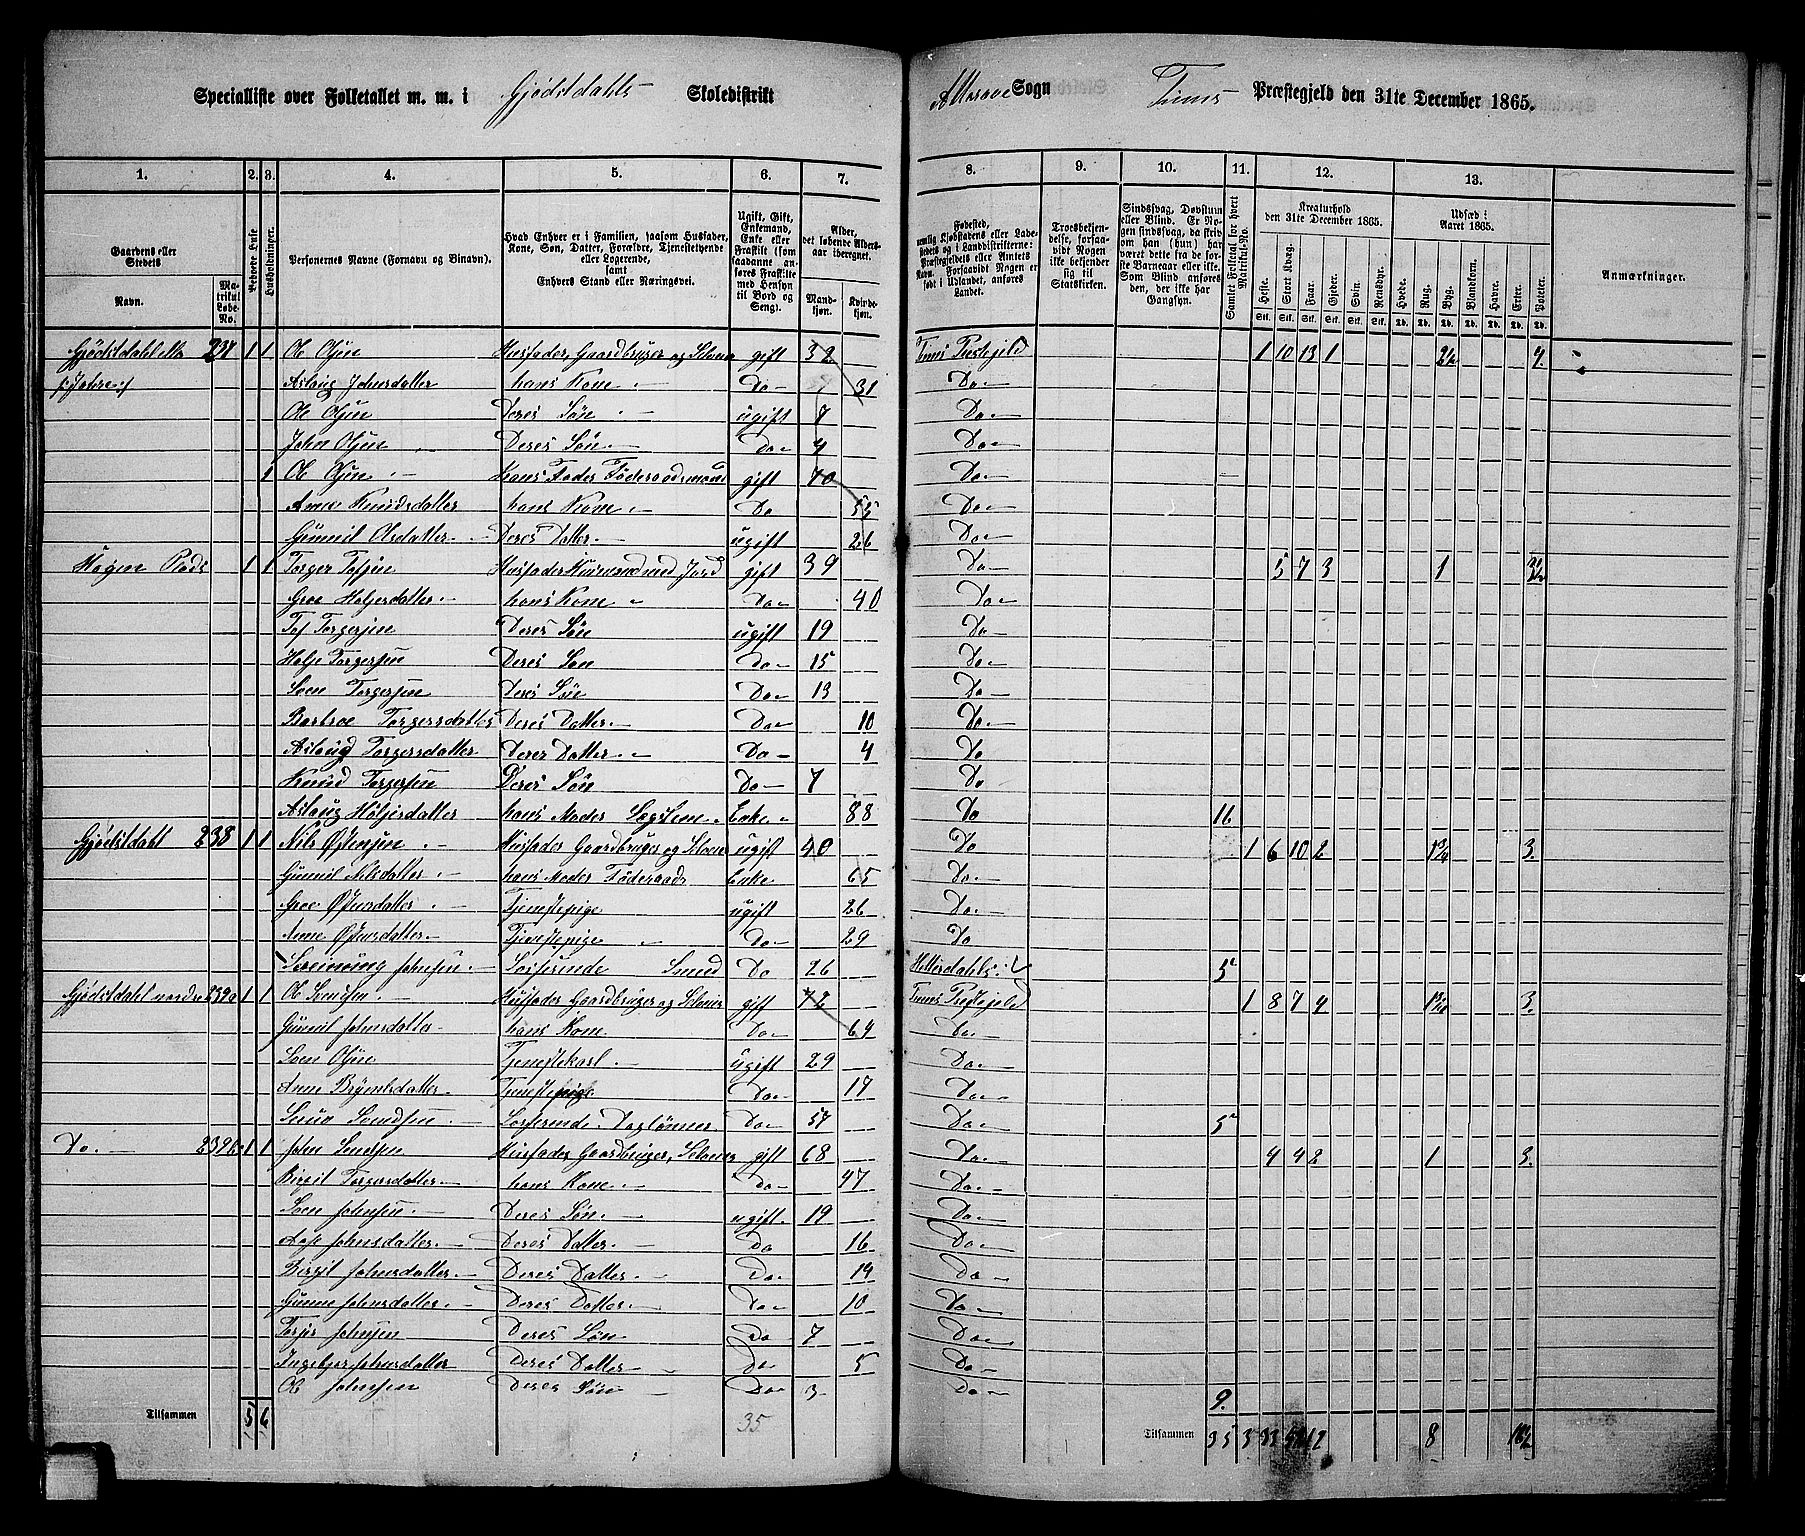 Specialliste over Folketallet m. m. i Gjødstdahls Skoledistrikt Sogn Tinns Præstegjeld den 31te December 1865.
1. 2. 3. 4. 5. 6. 7. 8. 9. 10. 11. 12. 13.
Gaardens eller Stedets
Navn. Matrikul Løbe-No.
Beboede Huse
Husholdninger.
Personernes Navne (Fornavn og Binavn).
Hvad Enhver er i Familien, saasom Husfader, Kone, Søn, Datter, Forældre, Tjenestetyende eller Logerende, samt Enhvers Stand eller Næringsvei.
Ugift, Gift, Enkemand, Enke eller Fraskilt (som saadanne anføres Fraskilte med Hensyn til Bord og Seng).
Alder, det løbende Alders-aar iberegnet.
Mandkjøn. Kvindekjøn.
Fødested,
Troesbekjendelse, forsaavidt Nogen ikke bekjender sig til Statskirken.
Sindssvag, Døvstum eller Blind. Er Nogen sindssvag, da skrives om han (hun) har været dette fra de første Barneaar eller ikke. Som Blind anføres den, der ikke har Gangsyn.
Samlet Folketal for hvert Matrikul-No.
Kreaturhold den 31te December 1865.
Heste. Stort Kvæg. Faar. Gjeder. Svin. Rensdyr.
Udsæd i Aaret 1865.
Hvede. Rug. Byg. Blandkorn. Havre. Erter. Poteter.
Anmærkninger.
237 1 1 Ole Olsen Husfader, Gaardbruger og Selveier gift 32 Tinns Prestejeld 1 10 13 1 4.
Aslaug Johnsdatter hans Kone Do 31 Do
Ole Olsen Deres Søn ugift 7 Do
John Olsen Deres Søn Do 4 Do
1 Ole Olsen Hans Fader Føderaadsmand gift 70 Do
Anne Knudsdatter hans Kone Do 55 Do
Gunnil Olsdatter Deres Datter ugift 26 Do
Plads 1 1 Torger gift 39 Do 5 7 3 1
Groe Holjesdatter hans Kone Do 40 Do
Torgersen Deres Søn ugift 19 Do
Holje Torgersen Deres Søn Do 15 Do
Sven Torgersen Deres Søn Do 13 Do
Barbroe Torgersdatter Deres Datter Do 10 Do
Aslaug Torgersdatter Deres Datter Do 4 Do
Knud Torgersen Deres Søn Do 7 Do
Aslaug Holjesdatter hans Moder Enke 88 Do 16
Gjødstdahl 238 1 1 Nils Østensen Husfader Gaardbruger og Selveier ugift 40 Do 1 6 10 2 3.
Gunnil Nilsdatter hans Moder Føderaads Enke 65 Do
Groe Østensdatter Tjenestepige ugift 26 Do
Anne Østensdatter Tjenestepige Do 29 Do
Johnsen Losjerende Smed Do 26 Hitterdahls 5
Gjødstdahl nordre 239a 1 1 Ole Svendsen Husfader Gaardbruger og Selveier gift 72 Tinns Prestejeld 1 8 7 4 3.
Gunnil Johnsdatter hans Kone Do 64 Do
Sven Olsen Tjenestekarl ugift 29 Do
Anne Brynilsdatter Tjenestepige Do 17 Do
Svendsen Losjerende Daglønner Do 57 Do 5
Do 239b 1 1 John Svendsen Husfader Gaardbruger, Selveier gift 68 Do 4 4 2 1 3.
Birgit Torgersdatter hans Kone Do 47 Do
Sven Johnsen Deres Søn ugift 19 Do
Aase Johnsdatter Deres Datter Do 16 Do
Birgit Johnsdatter Deres Datter Do 14 Do
Gunne Johnsdatter Deres Datter Do 10 Do
Johnsen Deres Søn Do 7 Do
Ingebjor Johnsdatter Deres Datter Do 5 Do
Ole Johnsen Deres Søn Do 3 Do 9.
Tilsammen 5 6 35 Tilsammen 35 3 33 12 8